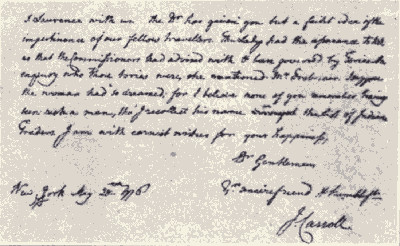 & Lawrence with us the Dr has given you but a faint idea of the
impertinence of our fellow travellers. The Lady had the assurance to tell
us that the Commissioners had advised with & been governed by Tories
enquiry who those tories were, she mentioned Mr. suppose
the woman had so dreamed, for I believe none of you remember having
seen such a man, tho' I recollect his name amongst the list of Indian
Traders I am with earnest wishes for your happiness,
Dr Gentlemen
New York May 28th 1776
Yr sincere friend & humble St
J. Carroll